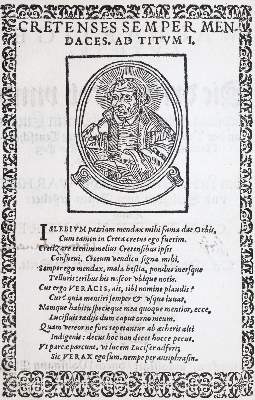 CRETENSES SEMPER MEN-
DACES. AD TITVM I.
ISLEBIVM patriam mendax mihi fama dat Orbis,
Cum tamen in Creta cretus ego fuerim.
Cretizare etenim melius Cretensibus ipse
Consuevi, Cretæ vendico signa mihi.
Semper ego mendax, mala bestia, pondus inersque
Telluris
Cur ergo VERACIS, ait, tibi nomine plaudis?
Cur? quia mentiri semper & usque iuvat.
Namque habitu specieque mea quoque mentior, ecce,
Lucifluis radijs dum caput orno meum.
Quam vereor ne furs repetantur ab alteris alti
Indigenis: decus hoc non decet hocce pecus.
Ut parcæ parcunt, ut lucem Lucifer adfert,
Sic VERAX ego sum, nempe per antiphrasin.